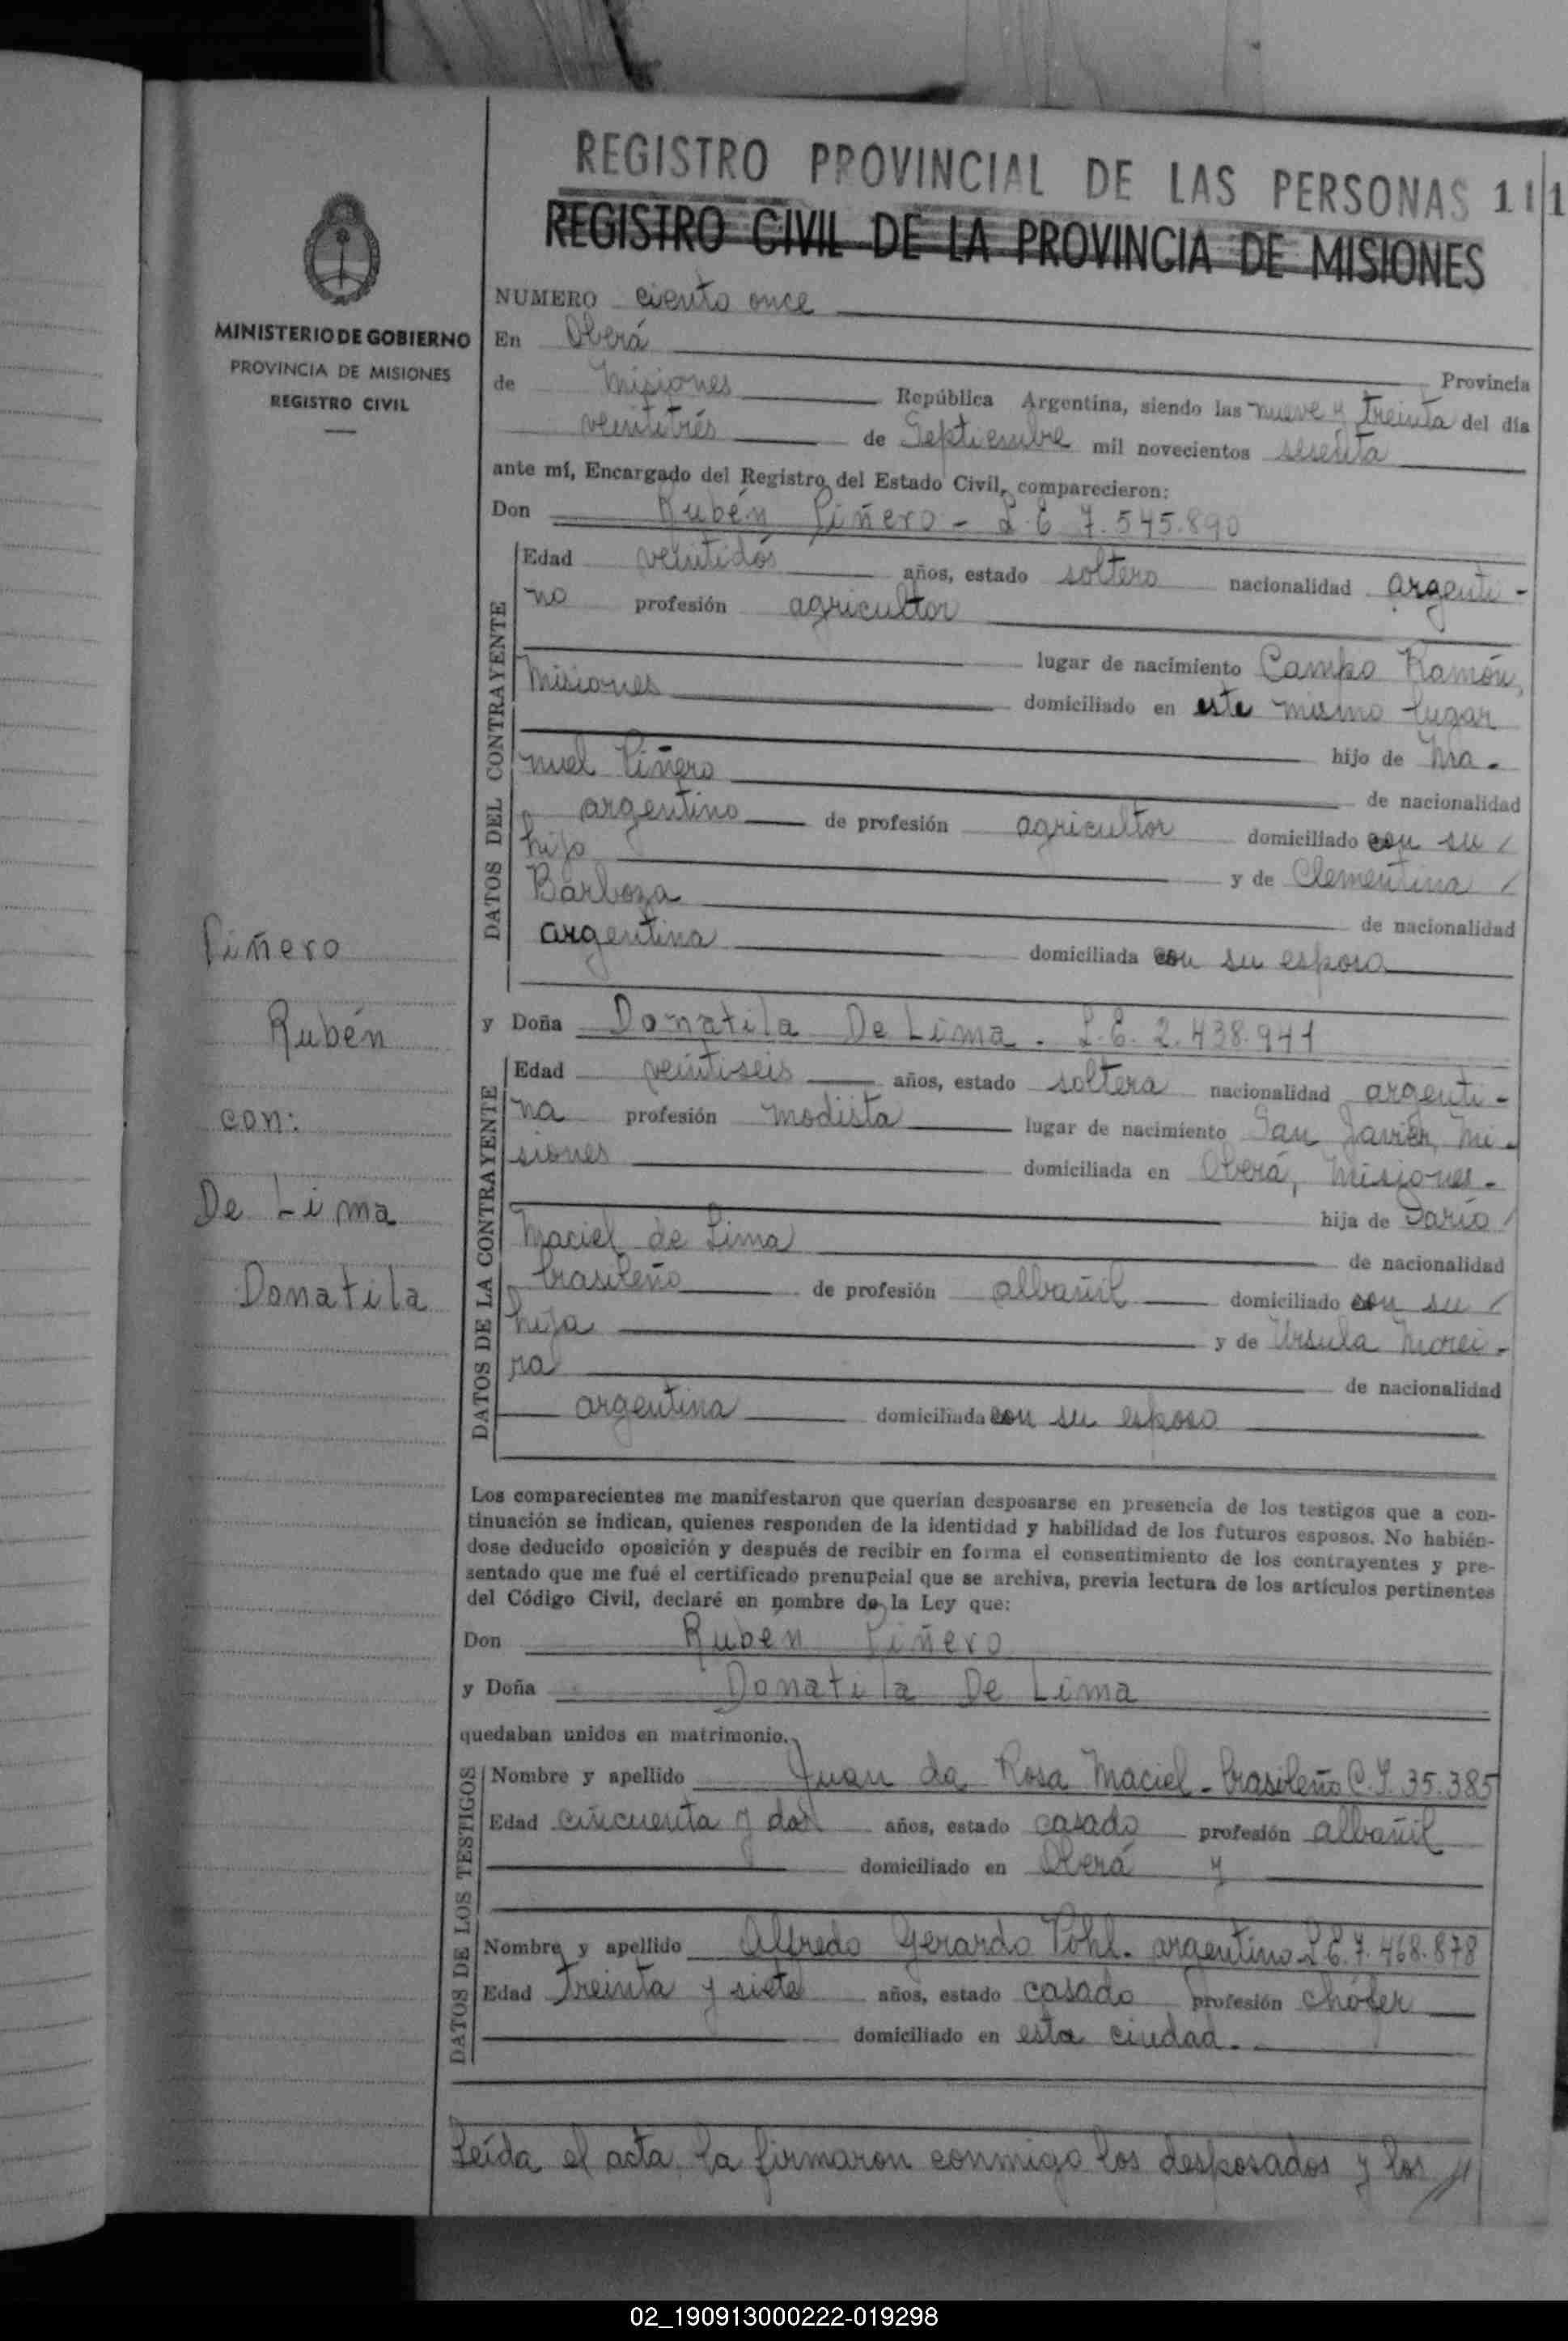 REGISTRO PROVINCIAL DE LAS PERSONAS 111
REGISTRO CIVIL DE LA PROVINCIA DE MISIONES
MINISTERIO DE GOBIERNO
PROVINCIA DE MISIONES
REGISTRO CIVIL
NUMERO ciento once
En Oberá
Provincia
de Misiones República Argentina, siendo las nueve y treinta del día
veintitrés de Septiembre mil novecientos sesenta
ante mí, Encargado del Registro del Estado Civil, comparecieron:
Don Rubén Piñero - L.E 7.545.890
DATOS DEL CONTRAYENTE
Edad veintidós años, estado soltero nacionalidad argenti-
no profesión agricultor
lugar de nacimiento Campo Ramón,
Misiones domiciliado en este mismo lugar
hijo de Ma-
nuel Piñero de nacionalidad
argentino de profesión agricultor domiciliado con su /
hijo y de Clementina /
Barboza de nacionalidad
argentina domiciliada con su esposo
Piñero
Rubén
con:
De Lima
Donatila
y Doña Donatila De Lima. L.E. 2.438.941
DATOS DE LA CONTRAYENTE
Edad veintiseis años, estado soltera nacionalidad argenti-
na profesión modista lugar de nacimiento San Javier, Mi-
siones domiciliada en Oberá, Misiones-
hija de Darío /
Maciel de Lima de nacionalidad
brasileño de profesión albañil domiciliado con su /
hija y de Ursula Morei-
ra de nacionalidad
argentina domiciliada con su esposo
Los comparecientes me manifestaron que querían desposarse en presencia de los testigos que a con-
tinuación se indican, quienes responden de la identidad y habilidad de los futuros esposos. No habién-
dose deducido oposición y después de recibir en forma el consentimiento de los contrayentes y pre-
sentado que me fué el certificado prenupcial que se archiva, previa lectura de los artículos pertinentes
del Código Civil, declaré en nombre de la Ley que:
Don Ruben Piñero
y Doña Donatila De Lima
quedaban unidos en matrimonio.
DATOS DE LOS TESTIGOS
Nombre y apellido Juan da Rosa Maciel - brasileño C.I. 35.385
Edad cincuenta y dos años, estado casado profesión albañil
domiciliado en Oberá y
Nombre y apellido Alfredo Gerardo Pohl - argentino L.E. 7.468.878
Edad treinta y siete años, estado casado profesión chófer
domiciliado en esta ciudad.
Leída el acta, la firmaron conmigo los desposados y los //
02_190913000222-019298